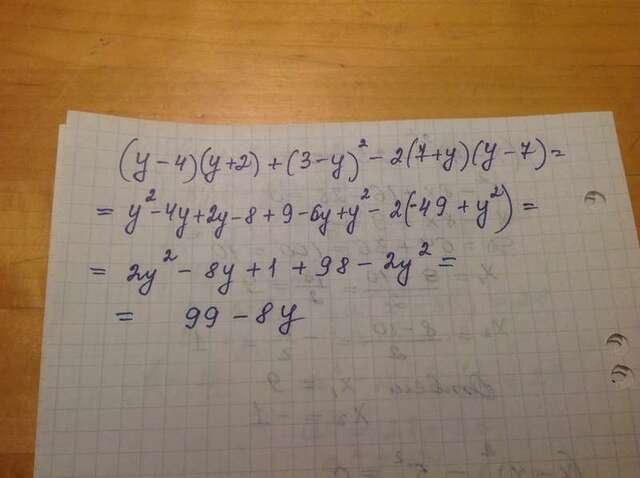 (y-4)(y+2)+(3-y)²-2(7+y)(y-7)=
= y²-4y+2y-8+9-6y+y²-2(-49+y²)=
= 2y²-8y+1+98-2y²=
= 99-8y